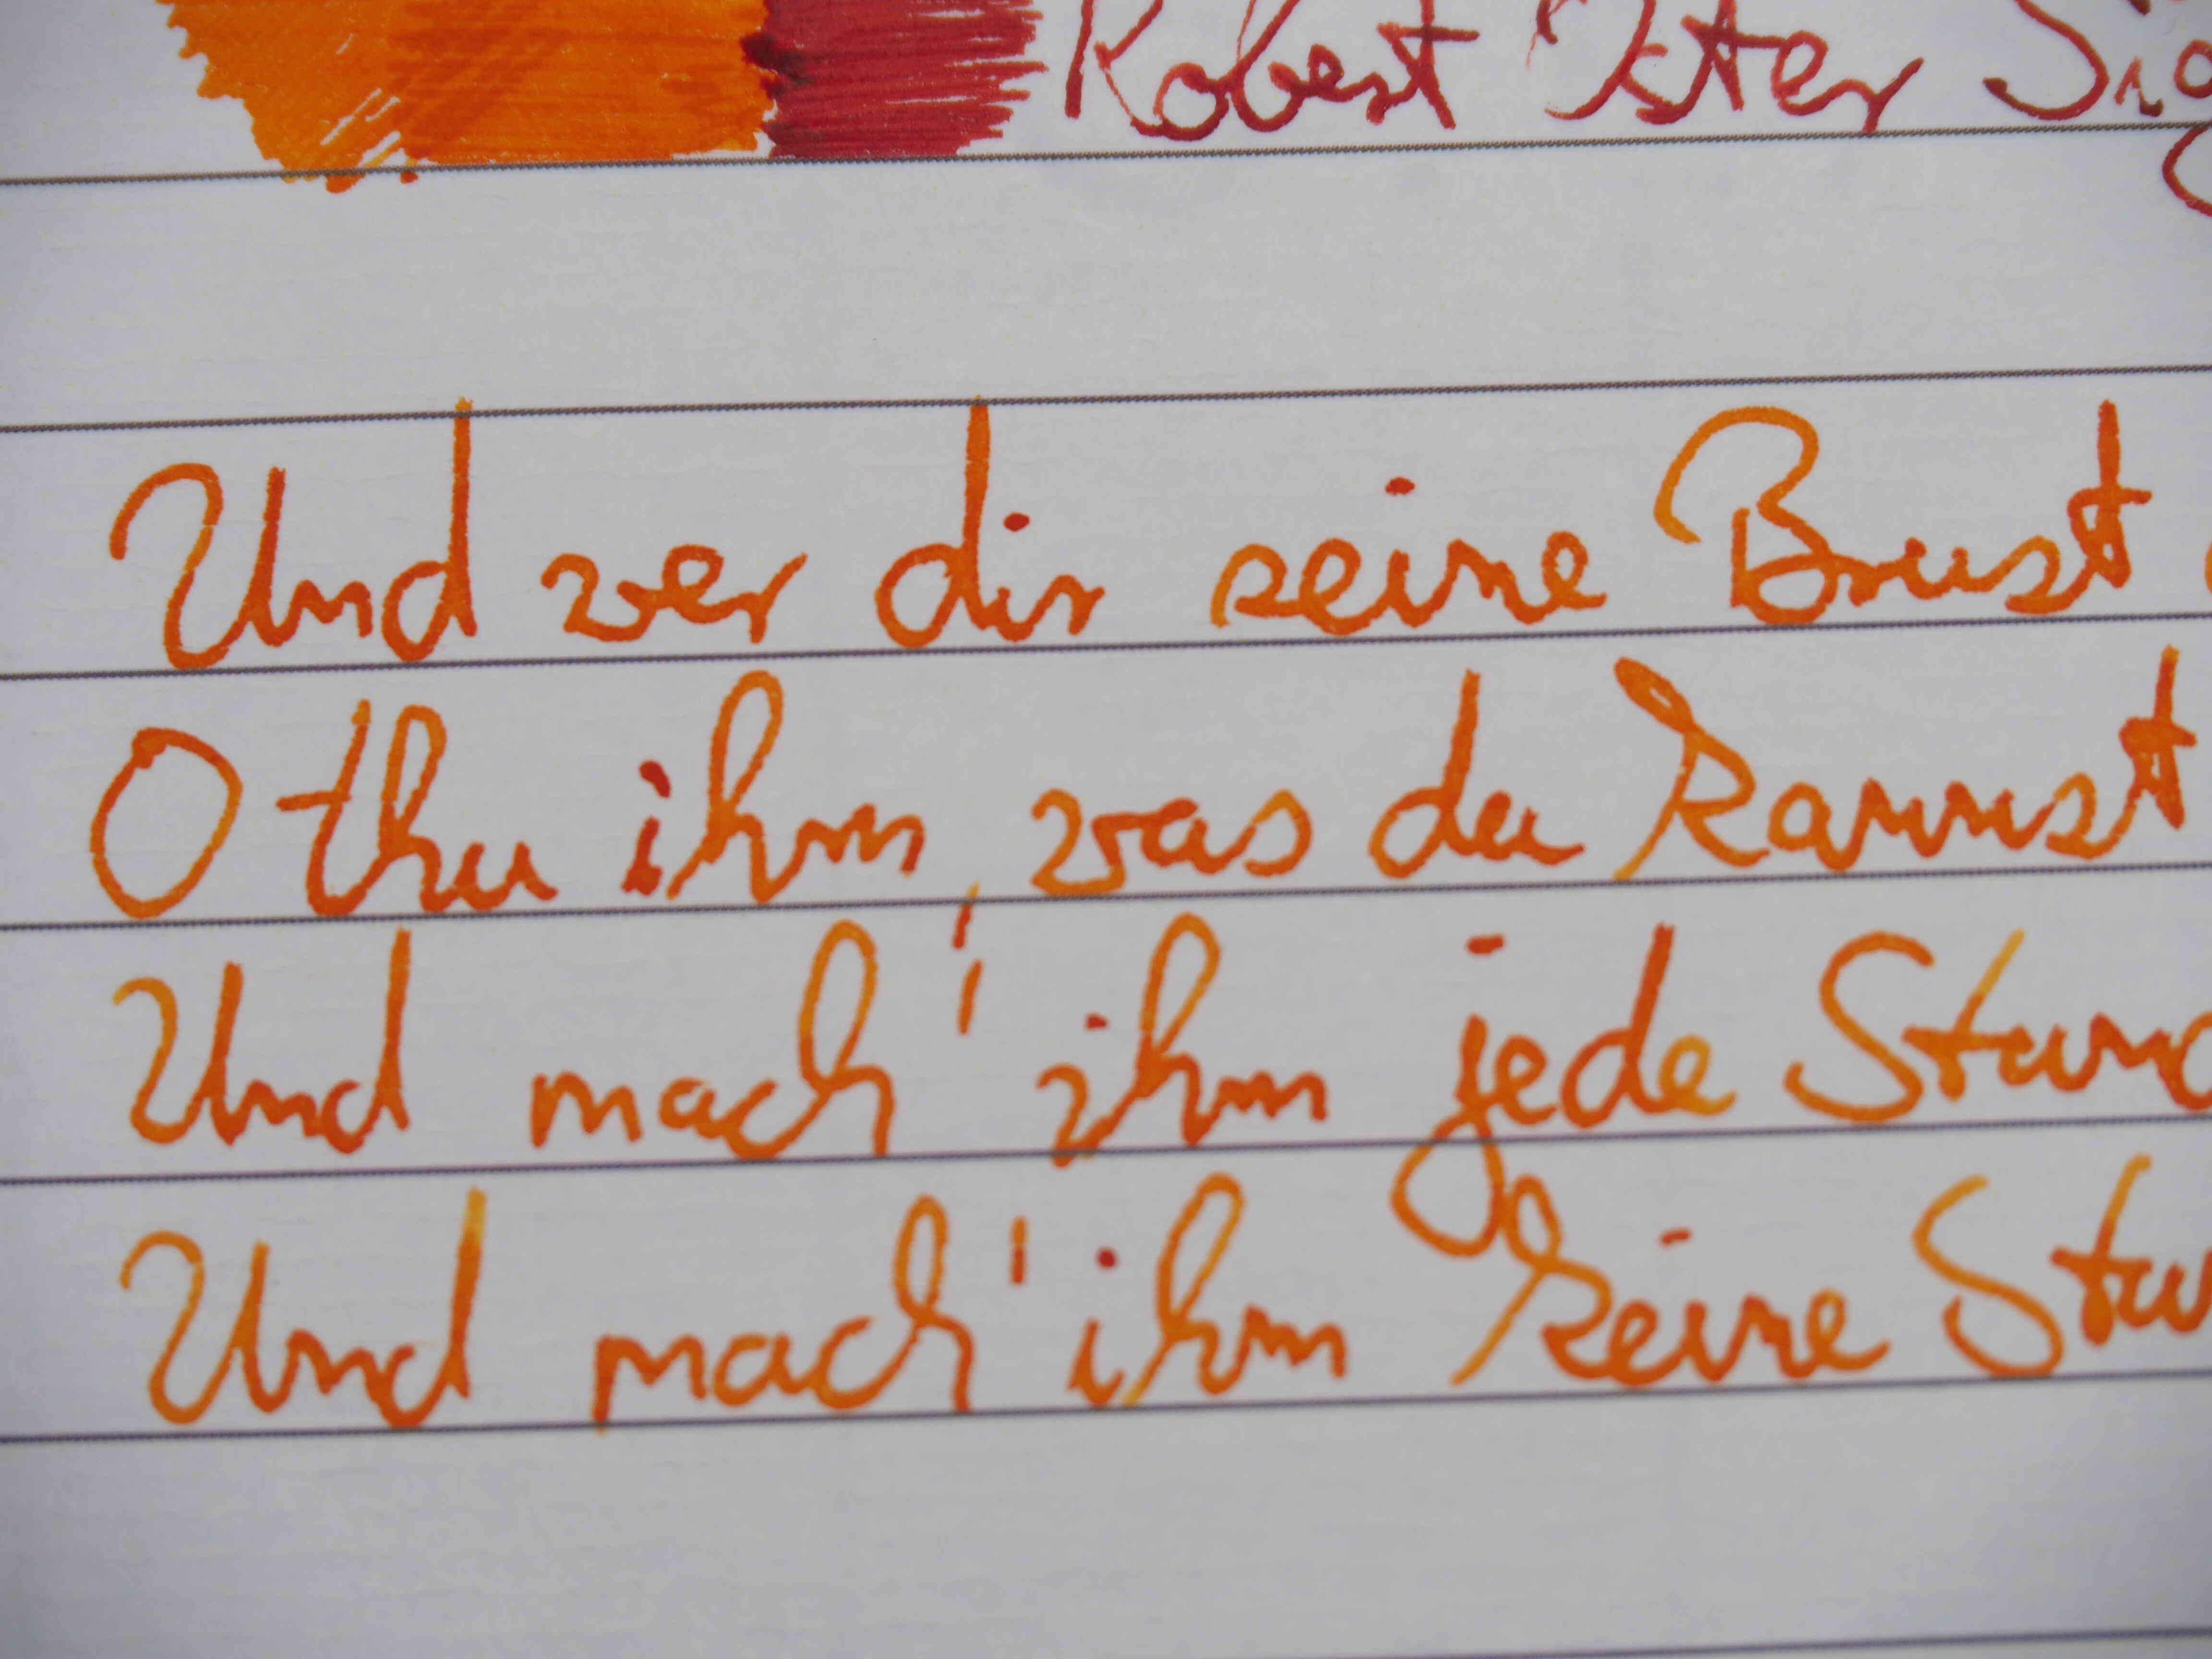 Robert Oster Sig
Und wer dir seine Brust
O thu ihm, was du kannst
Und mach' ihm jede Stund
Und mach' ihm keine Stu